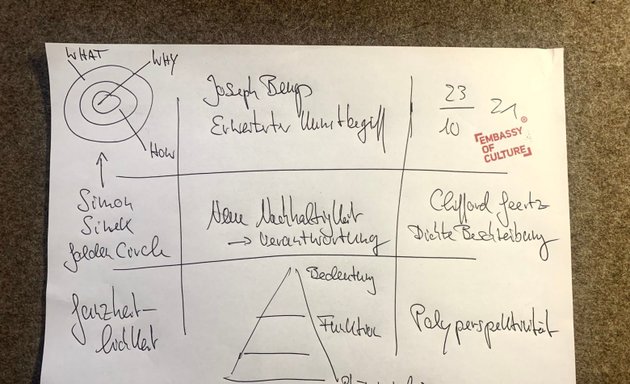 WHAT
WHY
HOW
Simon
Sinek
Golden Circle
Joseph Beuys
Erweiterter Kunstbegriff
23
10
21
EMBASSY
OF
CULTURE
®
Neue Nachhaltigkeit
→ Verantwortung
Clifford Geertz
Dichte Beschreibung
Ganzheit-
lichkeit
Bedeutung
Funktion
Polyperspektivität